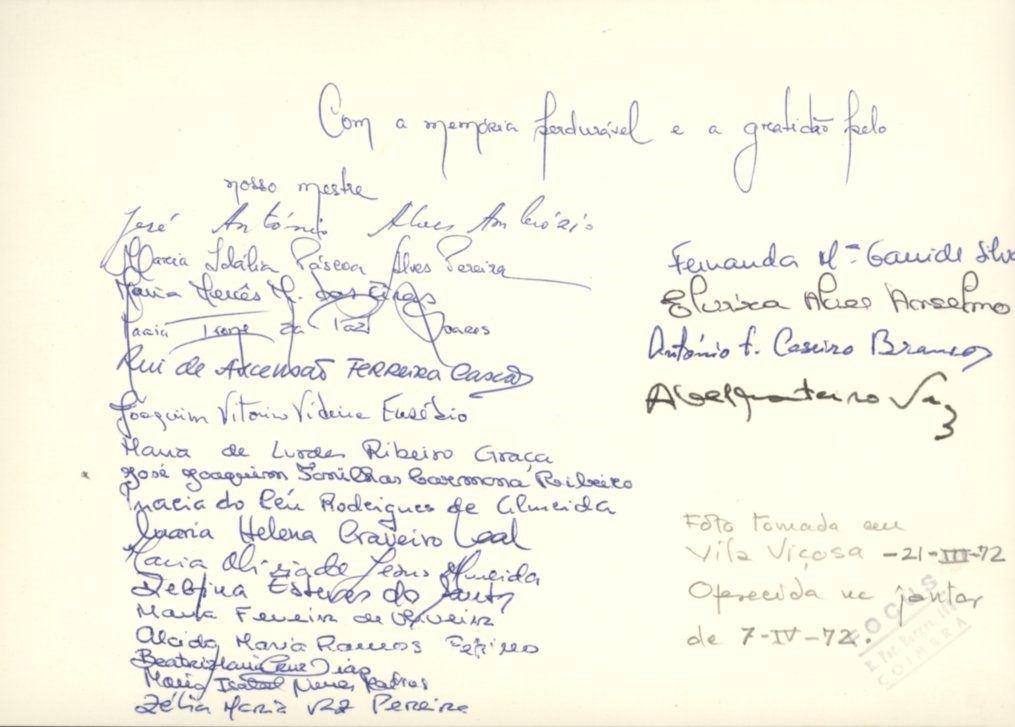 Com a memória perdurável e a gratidão pelo
nosso mestre
José António Alves Ambrózio
Maria Idália Páscoa Alves Pereira
Maria Mercês M.
Maria Irene da Paz Soares
Rui de Ascensão Ferreira Cascão
Joaquim Vitorino Videira Eusébio
Maria de Lurdes Ribeiro Graça
José Joaquim Carmona Ribeiro
Inacia do Céu Rodrigues de Almeida
Maria Helena Craveiro Leal
Maria Olívia de Jesus Almeida
Delfina Esteves dos Santos
Maria Ferreira de Oliveira
Alcida Maria Ramos
Beatriz Maria Cruz Dias
Maria Isabel Nunes
Zélia Maria Vaz Pereira
Fernanda Mª Garrido Silva
Alves Anselmo
António F. Caseiro Branco
Abel Monteiro Vaz
Foto tomada em
Vila Viçosa -21-III-72
Oferecida no jantar
de 7-IV-72.
COIMBRA